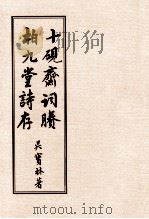 十硯齋詞賸
柏九堂詩存
吳寶林著